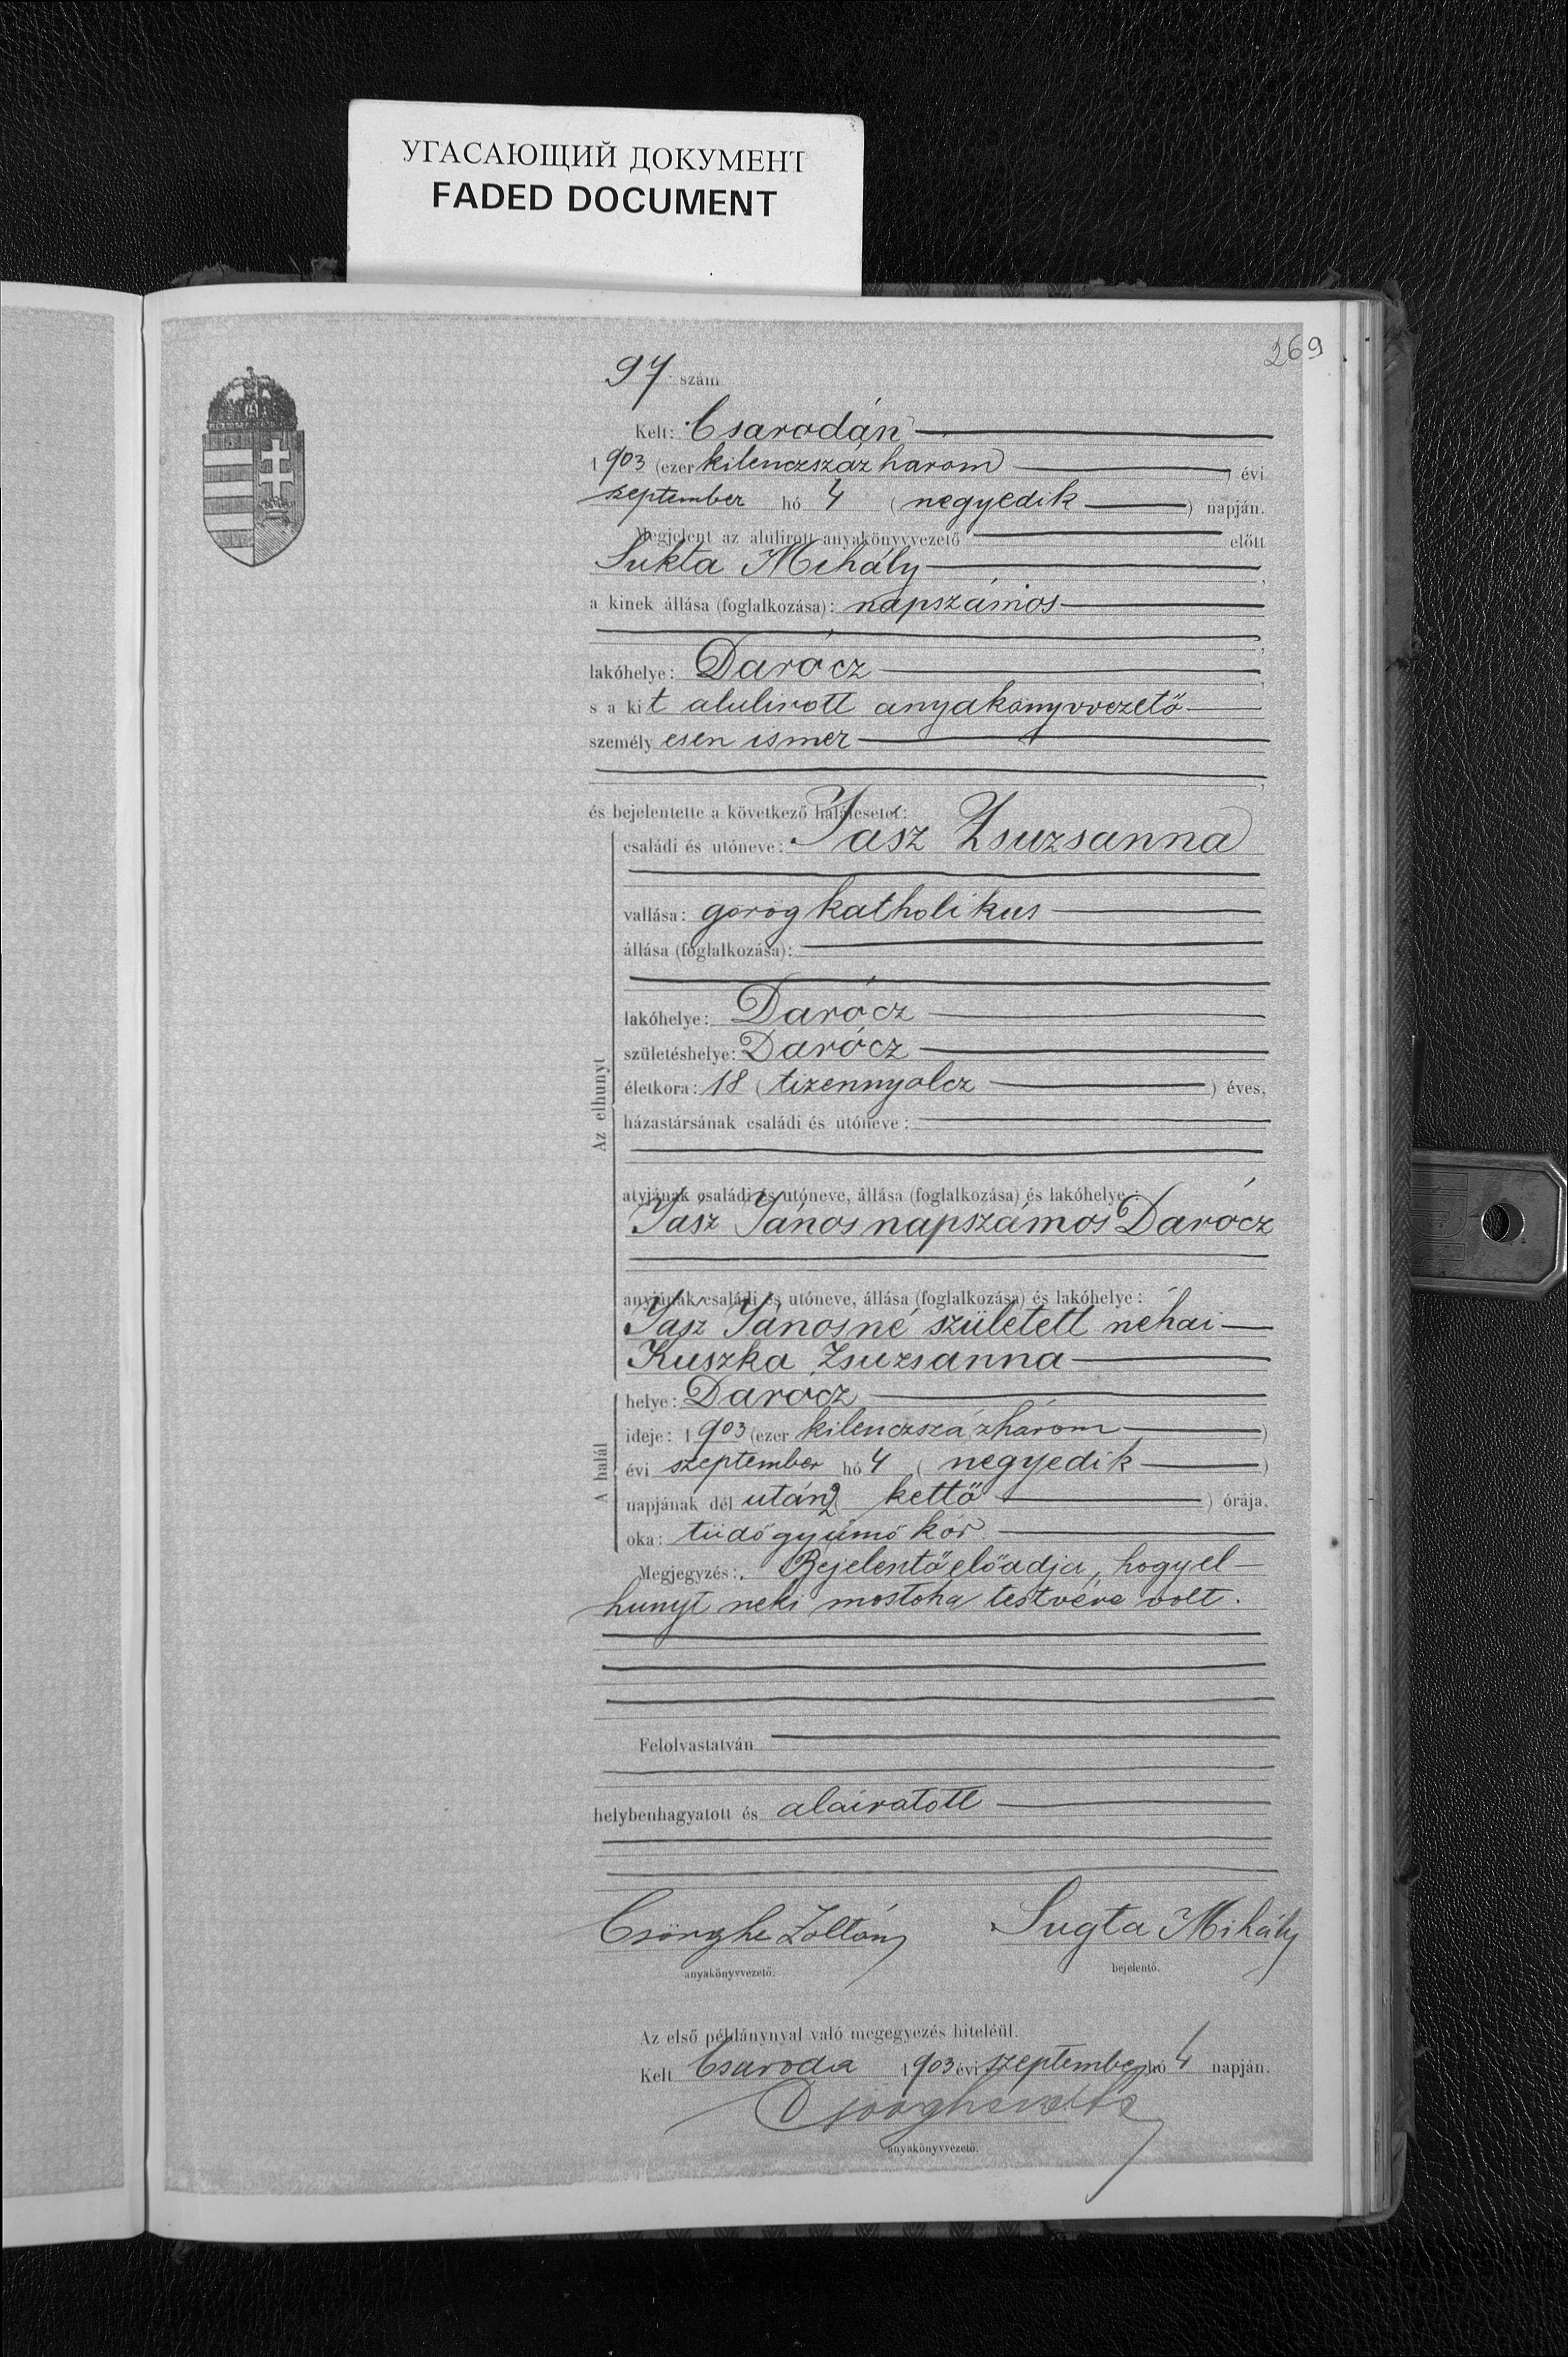 УГАСАЮЩИЙ ДОКУМЕНТ
FADED DOCUMENT
269
97 szám
Kelt: Csarodán
1903 (ezer kilenczszáz három) évi
szeptember hó 4 (negyedik) napján.
Megjelent az alulirott anyakönyvvezető előtt
Sukta Mihály,
a kinek állása (foglalkozása): napszámos
,
lakóhelye: Darócz,
s a kit alulirott anyakönyvvezető
személyesen ismer
,
és bejelentette a következő halálesetet:
Az elhunyt
családi és utóneve: Jasz Zsuzsanna
vallása: görög katholikus
állása (foglalkozása):
lakóhelye: Darócz
születéshelye: Darócz
életkora: 18 (tizennyolcz) éves,
házastársának családi és utóneve:
atyjának családi és utóneve, állása (foglalkozása) és lakóhelye:
Jasz János napszámos Darócz
anyjának családi és utóneve, állása (foglalkozása) és lakóhelye:
Jasz Jánosné született néhai
Kuszka Zsuzsanna
A halál
helye: Darócz
ideje: 1903 (ezer kilenczszázhárom)
évi szeptember hó 4 (negyedik)
napjának dél után 2 (kettő) órája.
oka: tüdőgyümőkór.
Megjegyzés: Bejelentő előadja, hogy el-
hunyt neki mostoha testvére volt.
Felolvastatván
helybenhagyatott és aláiratott
Csörghe Zoltán Sugta Mihály
anyakönyvvezető. bejelentő.
Az első példánynyal való megegyezés hiteléül.
Kelt Csaroda 1903 évi szeptember hó 4 napján.
anyakönyvvezető.